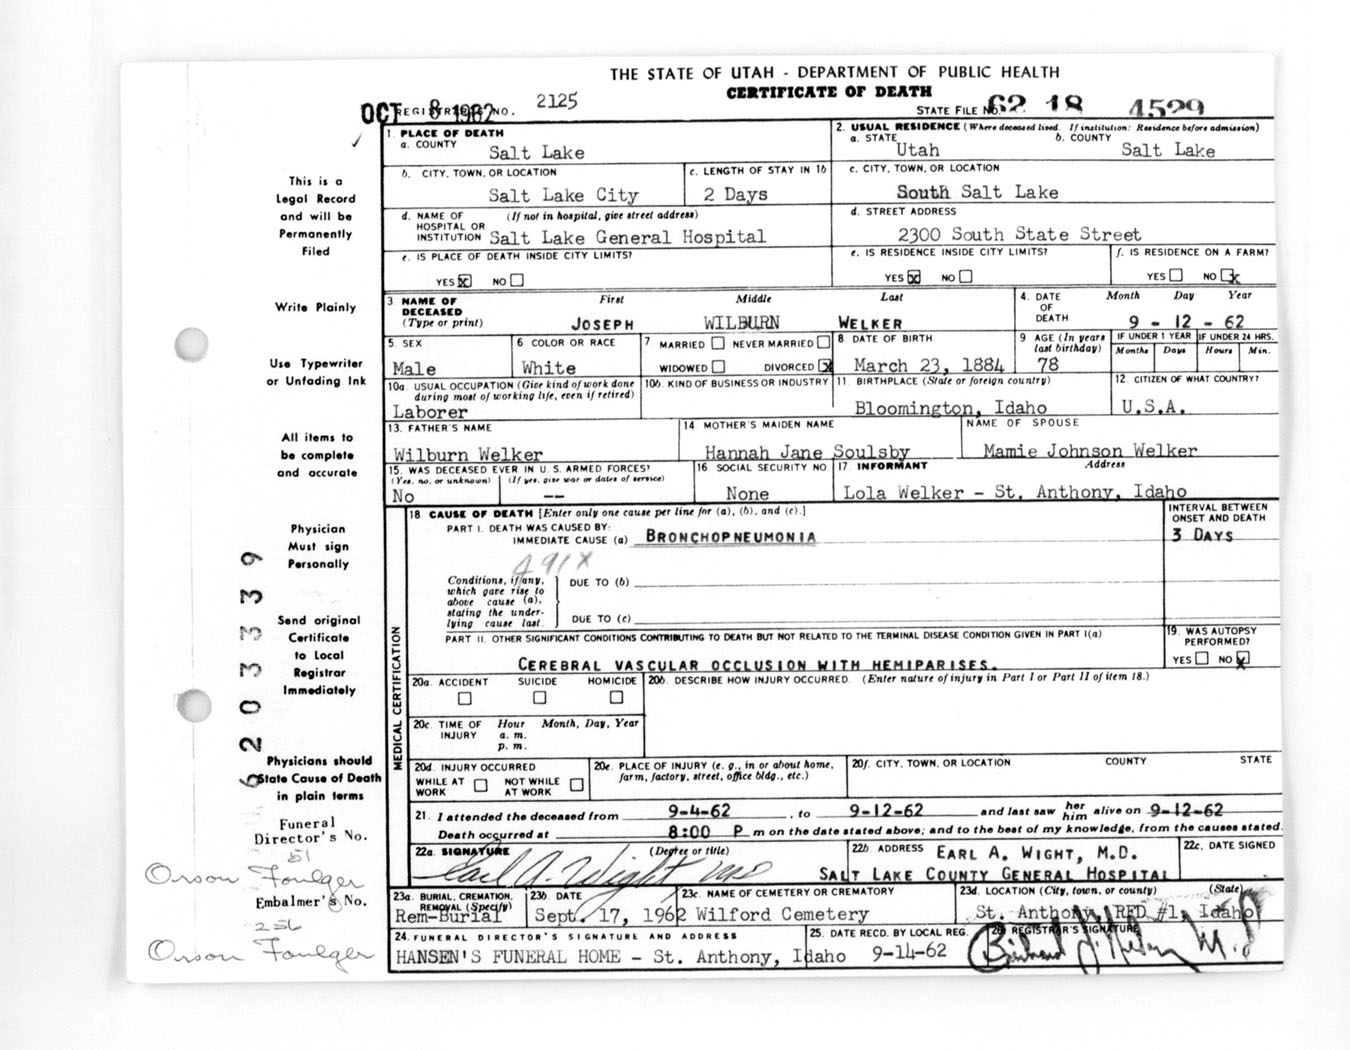 THE STATE OF UTAH - DEPARTMENT OF PUBLIC HEALTH
CERTIFICATE OF DEATH
OCT 8 1962
REGISTRAR'S NO. 2125
STATE FILE NO. 62 18 4529
1. PLACE OF DEATH
a. COUNTY Salt Lake
2. USUAL RESIDENCE (Where deceased lived. If institution: Residence before admission)
a. STATE Utah b. COUNTY Salt Lake
b. CITY, TOWN, OR LOCATION Salt Lake City
c. LENGTH OF STAY IN 1b 2 Days
c. CITY, TOWN, OR LOCATION South Salt Lake
d. NAME OF HOSPITAL OR INSTITUTION (If not in hospital, give street address) Salt Lake General Hospital
d. STREET ADDRESS 2300 South State Street
e. IS PLACE OF DEATH INSIDE CITY LIMITS? YES x NO
e. IS RESIDENCE INSIDE CITY LIMITS? YES x NO
f. IS RESIDENCE ON A FARM? YES NO x
3 NAME OF DECEASED (Type or print)
First Middle Last
JOSEPH WILBURN WELKER
4. DATE OF DEATH Month Day Year
9 - 12 - 62
5. SEX Male
6 COLOR OR RACE White
7 MARRIED NEVER MARRIED
WIDOWED DIVORCED x
8. DATE OF BIRTH March 23, 1884
9 AGE (In years last birthday) 78
IF UNDER 1 YEAR Months Days
IF UNDER 24 HRS. Hours Min.
10a. USUAL OCCUPATION (Give kind of work done during most of working life, even if retired)
Laborer
10b. KIND OF BUSINESS OR INDUSTRY
11. BIRTHPLACE (State or foreign country)
Bloomington, Idaho
12. CITIZEN OF WHAT COUNTRY?
U.S.A.
13. FATHER'S NAME
Wilburn Welker
14. MOTHER'S MAIDEN NAME
Hannah Jane Soulsby
NAME OF SPOUSE
Mamie Johnson Welker
15. WAS DECEASED EVER IN U. S. ARMED FORCES?
(Yes, no, or unknown) (If yes, give war or dates of service)
No --
16. SOCIAL SECURITY NO.
None
17. INFORMANT Address
Lola Welker - St. Anthony, Idaho
MEDICAL CERTIFICATION
18. CAUSE OF DEATH [Enter only one cause per line for (a), (b), and (c).]
INTERVAL BETWEEN ONSET AND DEATH
PART I. DEATH WAS CAUSED BY:
IMMEDIATE CAUSE (a) BRONCHOPNEUMONIA 3 DAYS
491X
Conditions, if any, which gave rise to above cause (a), stating the underlying cause last.
DUE TO (b)
DUE TO (c)
PART II. OTHER SIGNIFICANT CONDITIONS CONTRIBUTING TO DEATH BUT NOT RELATED TO THE TERMINAL DISEASE CONDITION GIVEN IN PART I(a)
CEREBRAL VASCULAR OCCLUSION WITH HEMIPARISES.
19. WAS AUTOPSY PERFORMED?
YES NO x
20a. ACCIDENT SUICIDE HOMICIDE
20b. DESCRIBE HOW INJURY OCCURRED. (Enter nature of injury in Part I or Part II of item 18.)
20c. TIME OF INJURY Hour Month, Day, Year
a. m.
p. m.
20d. INJURY OCCURRED
WHILE AT WORK NOT WHILE AT WORK
20e. PLACE OF INJURY (e. g., in or about home, farm, factory, street, office bldg., etc.)
20f. CITY, TOWN, OR LOCATION COUNTY STATE
21. I attended the deceased from 9-4-62, to 9-12-62 and last saw her him alive on 9-12-62
Death occurred at 8:00 P m on the date stated above; and to the best of my knowledge, from the causes stated.
22a. SIGNATURE (Degree or title)
Earl A. Wight MD
22b. ADDRESS EARL A. WIGHT, M.D.
SALT LAKE COUNTY GENERAL HOSPITAL
22c. DATE SIGNED
23a. BURIAL, CREMATION, REMOVAL (Specify)
Rem-Burial
23b. DATE
Sept. 17, 1962
23c. NAME OF CEMETERY OR CREMATORY
Wilford Cemetery
23d. LOCATION (City, town, or county) (State)
St. Anthony, RFD #1, Idaho
24. FUNERAL DIRECTOR'S SIGNATURE AND ADDRESS
HANSEN'S FUNERAL HOME - St. Anthony, Idaho
25. DATE RECD. BY LOCAL REG.
9-14-62
26 REGISTRAR'S SIGNATURE
This is a
Legal Record
and will be
Permanently
Filed
Write Plainly
Use Typewriter
or Unfading Ink
All items to
be complete
and accurate
Physician
Must sign
Personally
Send original
Certificate
to Local
Registrar
Immediately
Physicians should
State Cause of Death
in plain terms
6203339
Funeral
Director's No.
51
Orson Foulger
Embalmer's No.
256
Orson Foulger